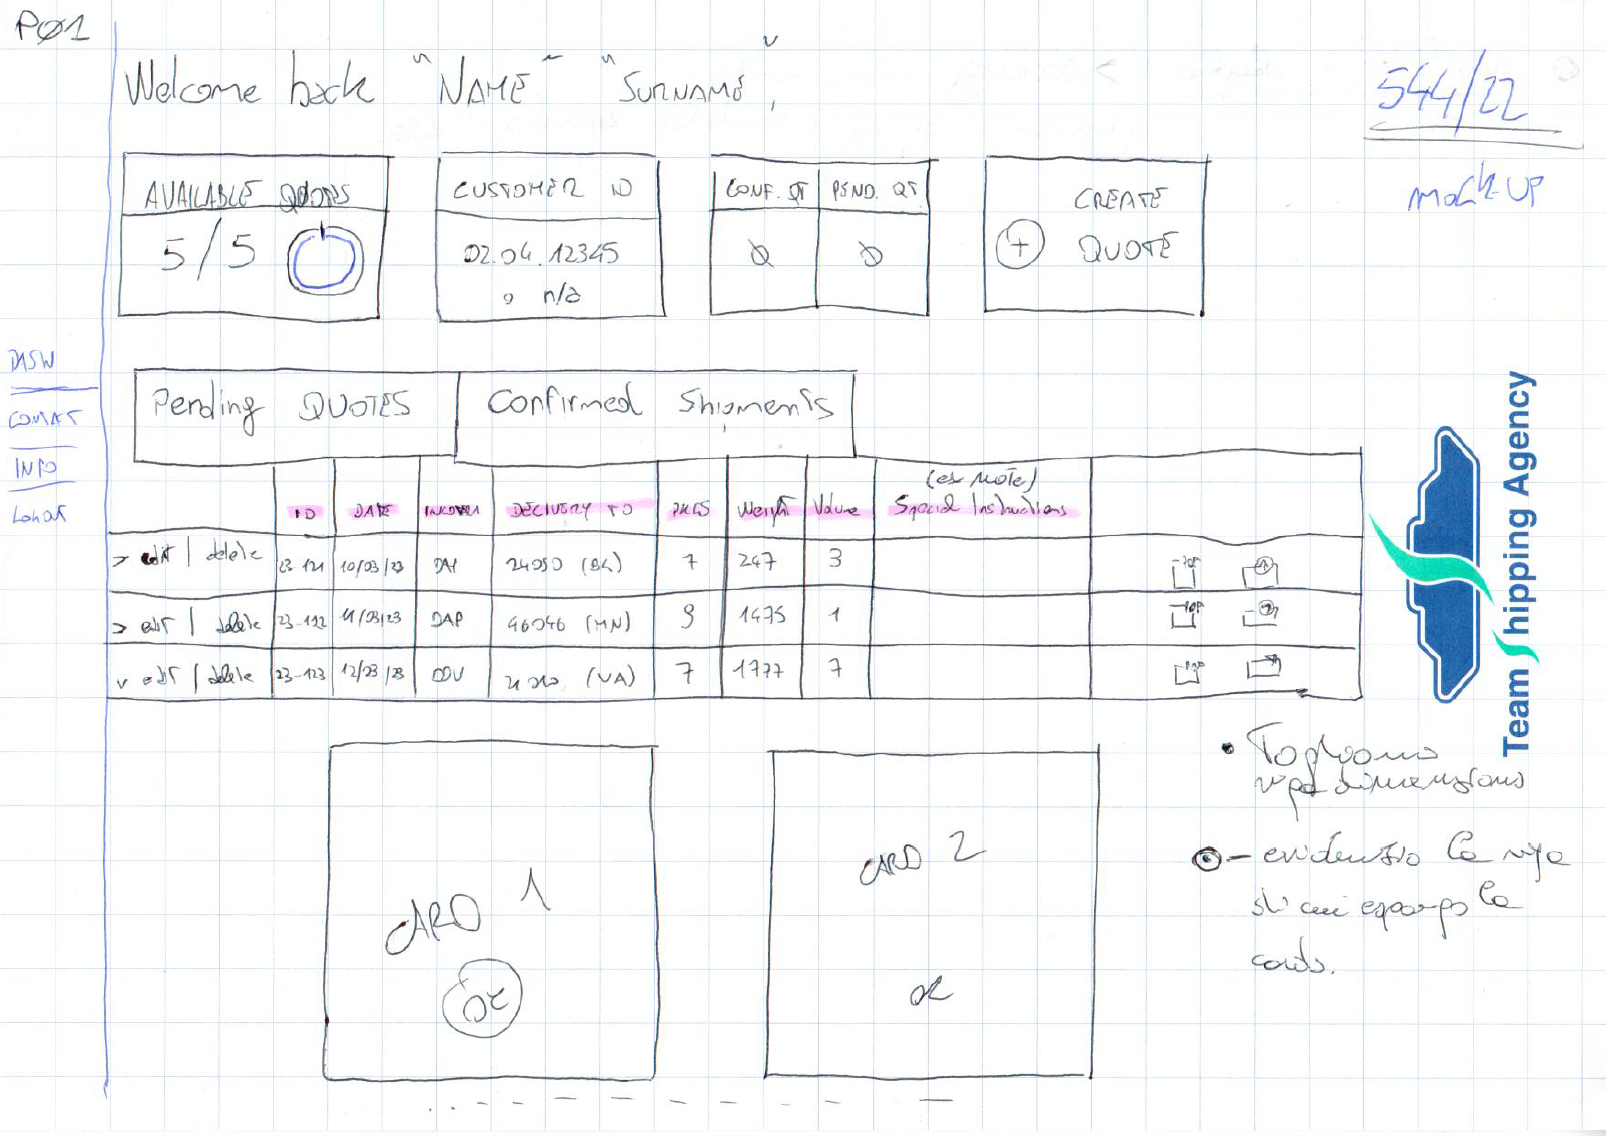 P01
Welcome back "NAME" "SURNAME",
544/22
MOCK-UP
AVAILABLE QUOTES
5/5
CUSTOMER ID
02.04.12345
o n/a
CONF. QT
PEND. QT.
0
0
CREATE
+ QUOTE
DASH
CONTACT
INFO
Logout
Pending QUOTES
Confirmed Shipments
ID DATE INCOTERM DELIVERY TO PKGS Weight Volume (ex Note) Special Instructions
> edit | delete 23-121 10/03/23 DAP 24050 (BG) 7 247 3 PDF
> edit | delete 23-122 11/03/23 DAP 46046 (MN) 9 1475 1 PDF
v edit | delete 23-123 12/03/23 DDU (VA) 7 1777 7 PDF
Team Shipping Agency
CARD 1
OK
CARD 2
OK
• Togliamo
riga dimensions
- evidenzio la riga
di cui espongo la
cards.